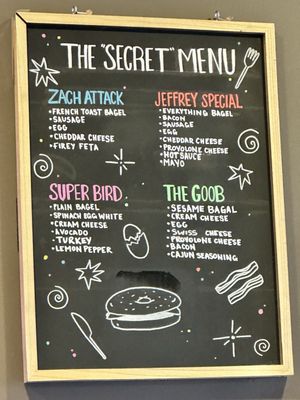 THE "SECRET" MENU
ZACH ATTACK
• FRENCH TOAST BAGEL
• SAUSAGE
• EGG
• CHEDDAR CHEESE
• FIREY FETA
JEFFREY SPECIAL
• EVERYTHING BAGEL
• BACON
• SAUSAGE
• EGG
• CHEDDAR CHEESE
• PROVOLONE CHEESE
• HOT SAUCE
• MAYO
SUPER BIRD
• PLAIN BAGEL
• SPINACH EGG WHITE
• CREAM CHEESE
• AVOCADO
• TURKEY
• LEMON PEPPER
THE GOOB
• SESAME BAGAL
• CREAM CHEESE
• EGG
• SWISS CHEESE
• PROVOLONE CHEESE
• BACON
• CAJUN SEASONING